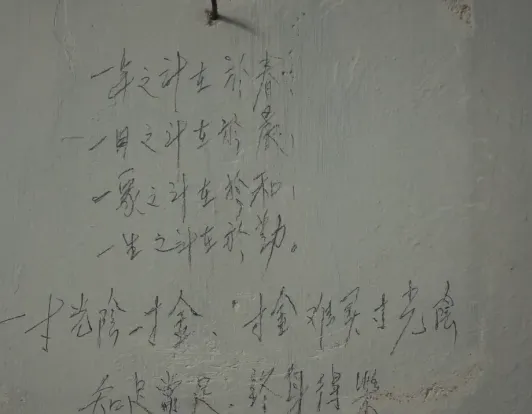 一年之计在於春;
一日之计在於晨,
一家之计在於和,
一生之计在於勤。
一寸光陰一寸金、寸金难买寸光陰
知足常足、終身得樂